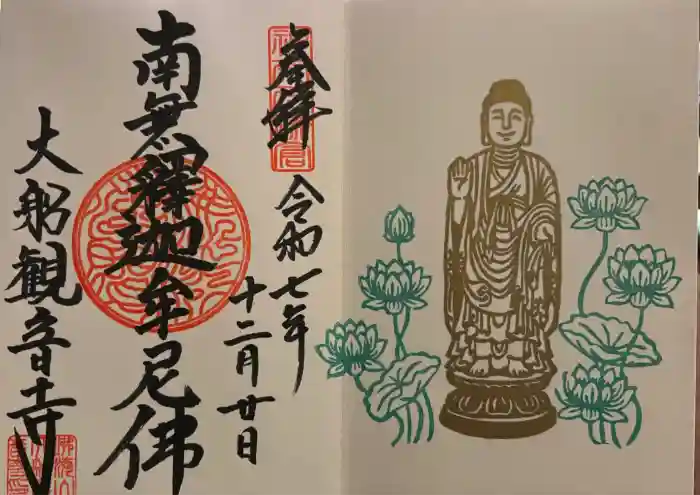 奉拝
令和七年
十二月廿日
南無釋迦牟尼佛
大船観音寺